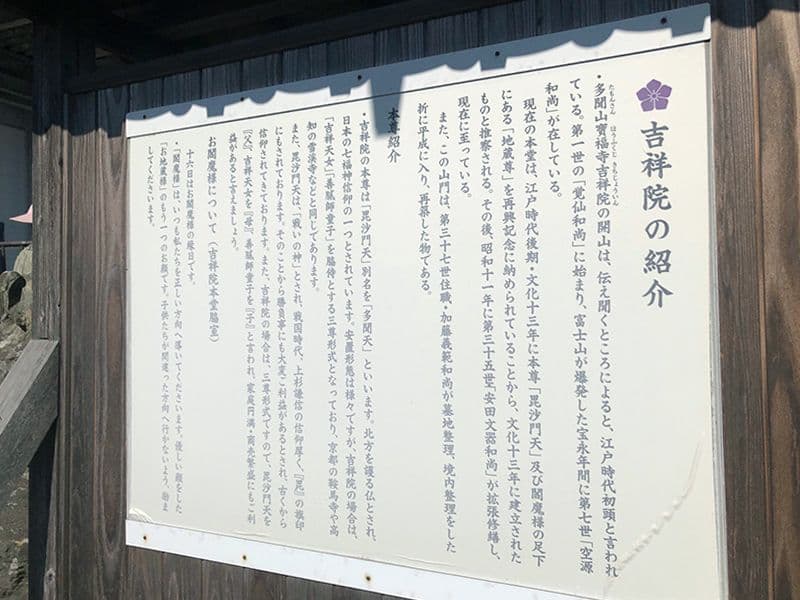 吉祥院の紹介
たもんさん ほうふくじ きちじょういん
・多聞山寳福寺吉祥院の開山は、伝え聞くところによると、江戸時代初頭と言われ
ている。第一世の「覚仙和尚」に始まり、富士山が爆発した宝永年間に第七世「空源
和尚」が在している。
現在の本堂は、江戸時代後期・文化十三年に本尊「毘沙門天」及び閻魔様の足下
にある「地蔵尊」を再興記念に納められていることから、文化十三年に建立された
ものと推察される。その後、昭和十一年に第三十五世「安田文器和尚」が拡張修繕し、
現在に至っている。
また、この山門は、第三十七世住職・加藤義範和尚が墓地整理、境内整理をした
折に平成に入り、再築した物である。
本尊紹介
・吉祥院の本尊は「毘沙門天」別名を「多聞天」といいます。北方を護る仏とされ、
日本の七福神信仰の一つとされています。安置形態は様々ですが、吉祥院の場合は、
「吉祥天女」「善膩師童子」を脇侍とする三尊形式となっており、京都の鞍馬寺や高
知の雪渓寺などと同じであります。
また、毘沙門天は、「戦いの神」とされ、戦国時代、上杉謙信の信仰厚く、『毘』の旗印
にもされております。そのことから勝負事にも大変ご利益があるとされ、古くから
信仰されてきております。また、吉祥院の場合は、三尊形式ですので、毘沙門天を
『父』、吉祥天女を『母』、善膩師童子を『子』と言われ、家庭円満・商売繁盛にもご利
益があると言えましょう。
お閻魔様について（吉祥院本堂脇室）
十六日はお閻魔様の縁日です。
・「閻魔様」は、いつも私たちを正しい方向へ導いてくださいます。優しい顔をした
「お地蔵様」のもう一つのお顔です。子供たちが間違った方向へ行かないよう、励ま
してくださいます。